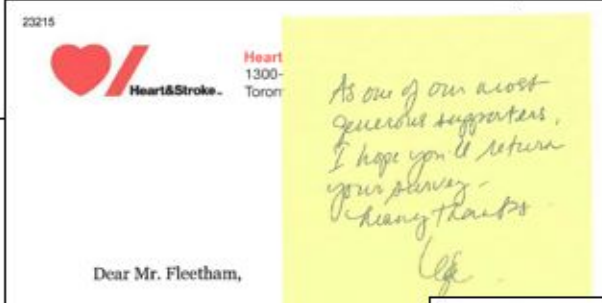 23215
Heart
1300-
Heart&Stroke™ Toron
As one of our most
generous supporters,
I hope you'll return
your survey -
Many thanks
Dear Mr. Fleetham,